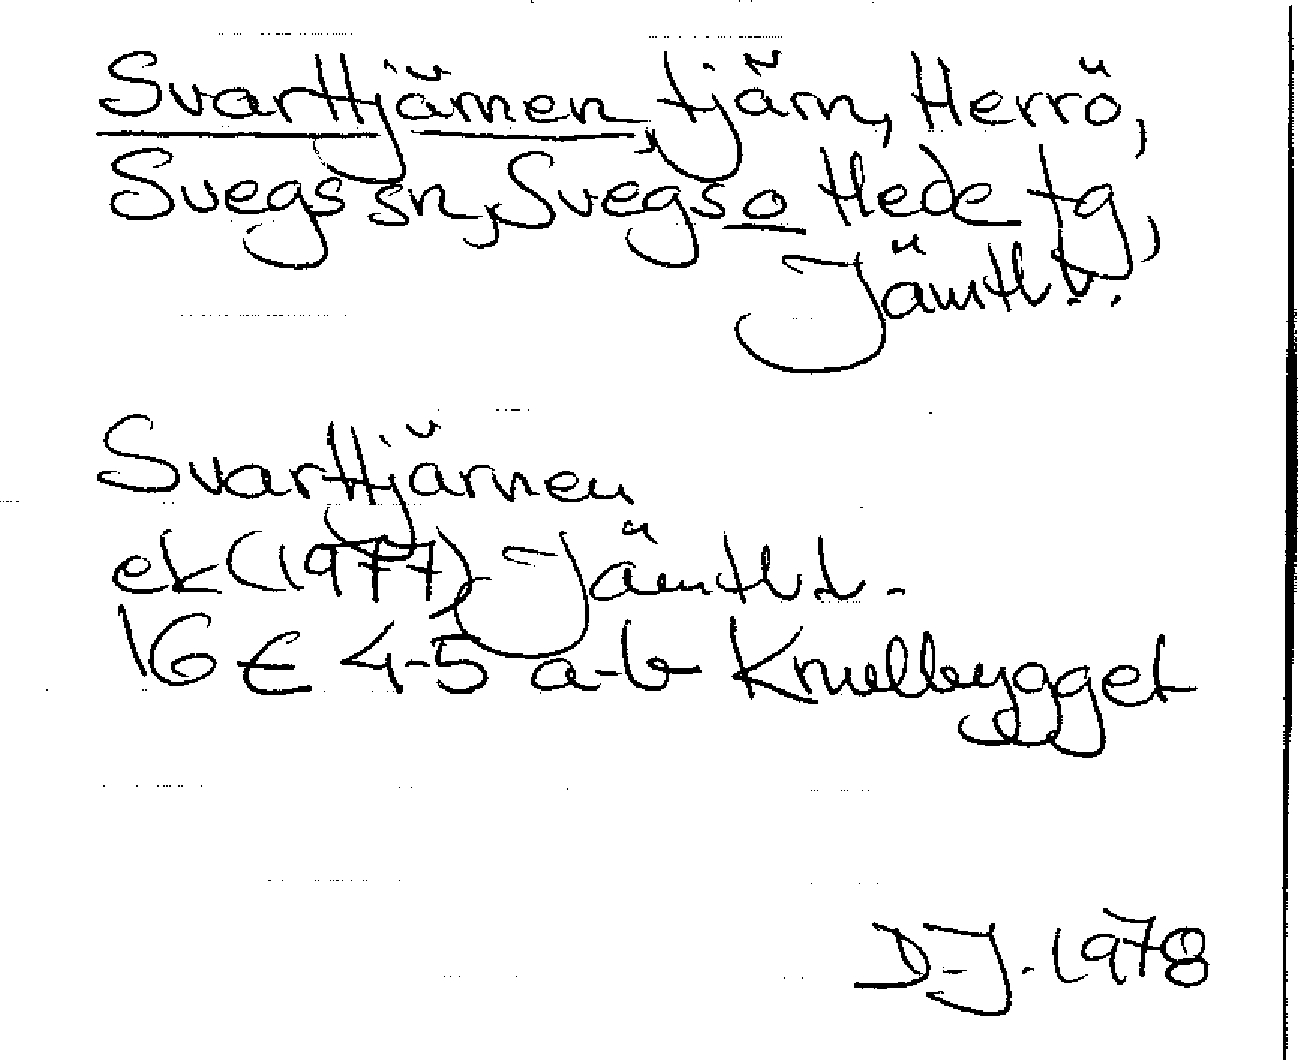 Svarttjärnen, tjärn, Herrö,
Svegs sn, Svegs o Hede tg,
Jämtl. l.
Svarttjärnen
ek (1977) Jämtl. l.
16 E 4-5 a-b Knullbygget
D-J. 1978